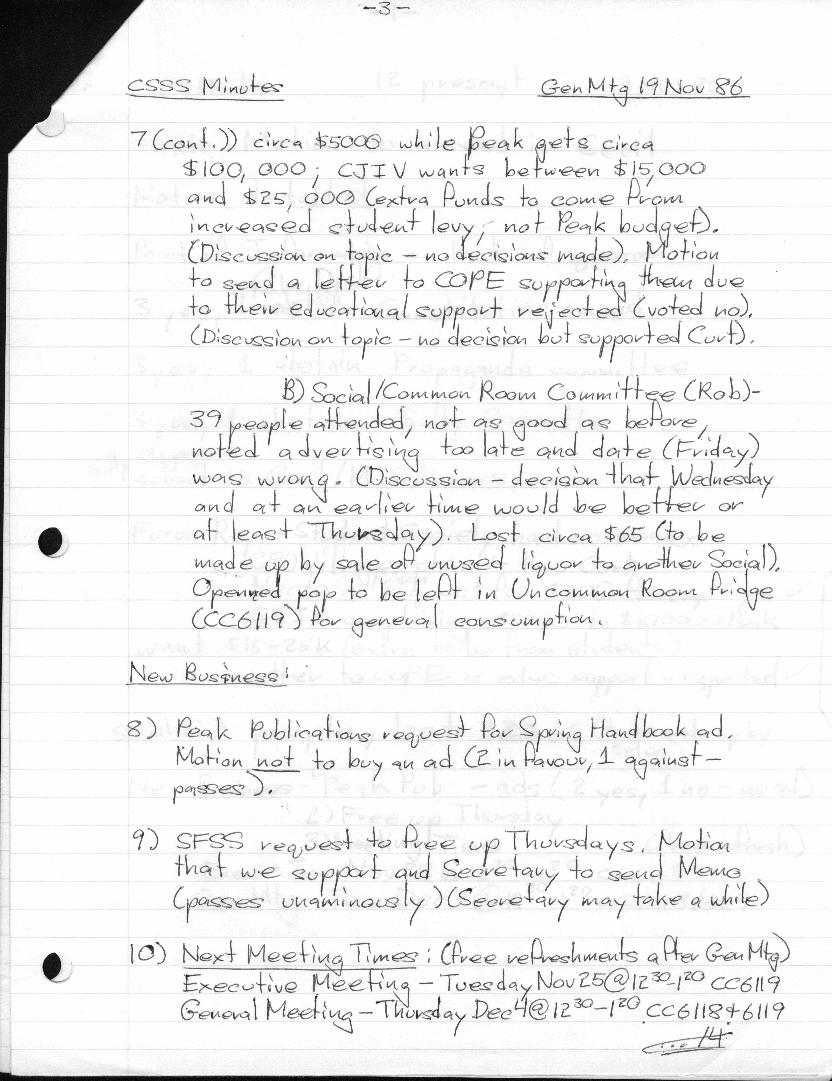 -3-
CSSS Minutes Gen Mtg 19 Nov 86
7 (cont.)) circa $5000 while Peak gets circa
$100,000; CJIV wants between $15,000
and $25,000 (extra funds to come from
increased student levy, not Peak budget).
(Discussion on topic - no decisions made). Motion
to send a letter to COPE supporting them due
to their educational support rejected (voted no).
(Discussion on topic - no decision but supported Curt).
B) Social/Common Room Committee (Rob)-
39 people attended, not as good as before,
noted advertising too late and date (Friday)
was wrong. (Discussion - decision that Wednesday
and at an earlier time would be better or
at least Thursday). Lost circa $65 (to be
made up by sale of unused liquor to another Social).
Openned pop to be left in Uncommon Room fridge
(CC6119) for general consumption.
New Business:
8) Peak Publications request for Spring Handbook ad.
Motion not to buy an ad (2 in favour, 1 against -
passes).
9) SFSS request to free up Thursdays. Motion
that we support and Secretary to send Memo
(passes unaminously) (Secretary may take a while)
10) Next Meeting Times: (free refreshments after Gen Mtg)
Executive Meeting - Tuesday Nov 25 @ 1230-120 CC6119
General Meeting - Thursday Dec 4 @ 1230-120 CC6118+6119
.../4